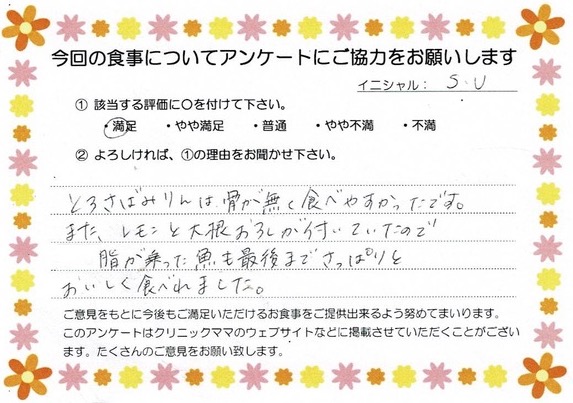 今回の食事についてアンケートにご協力をお願いします
イニシャル： S.U
① 該当する評価に〇を付けて下さい。
・満足 ・やや満足 ・普通 ・やや不満 ・不満
② よろしければ、①の理由をお聞かせ下さい。
とろさばみりんは骨が無く食べやすかったです。
また、レモンと大根おろしが付いていたので
脂が乗った魚も最後までさっぱりと
おいしく食べれました。
ご意見をもとに今後もご満足いただけるお食事をご提供出来るよう努めてまいります。
このアンケートはクリニックママのウェブサイトなどに掲載させていただくことがござい
ます。たくさんのご意見をお願い致します。